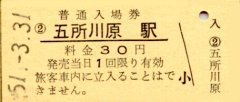 普通入場券
② 五所川原駅
料金30円
発売当日1回限り有効
旅客車内に立入ることはで
きません。
小
51.-3.31
入
②
五所川原